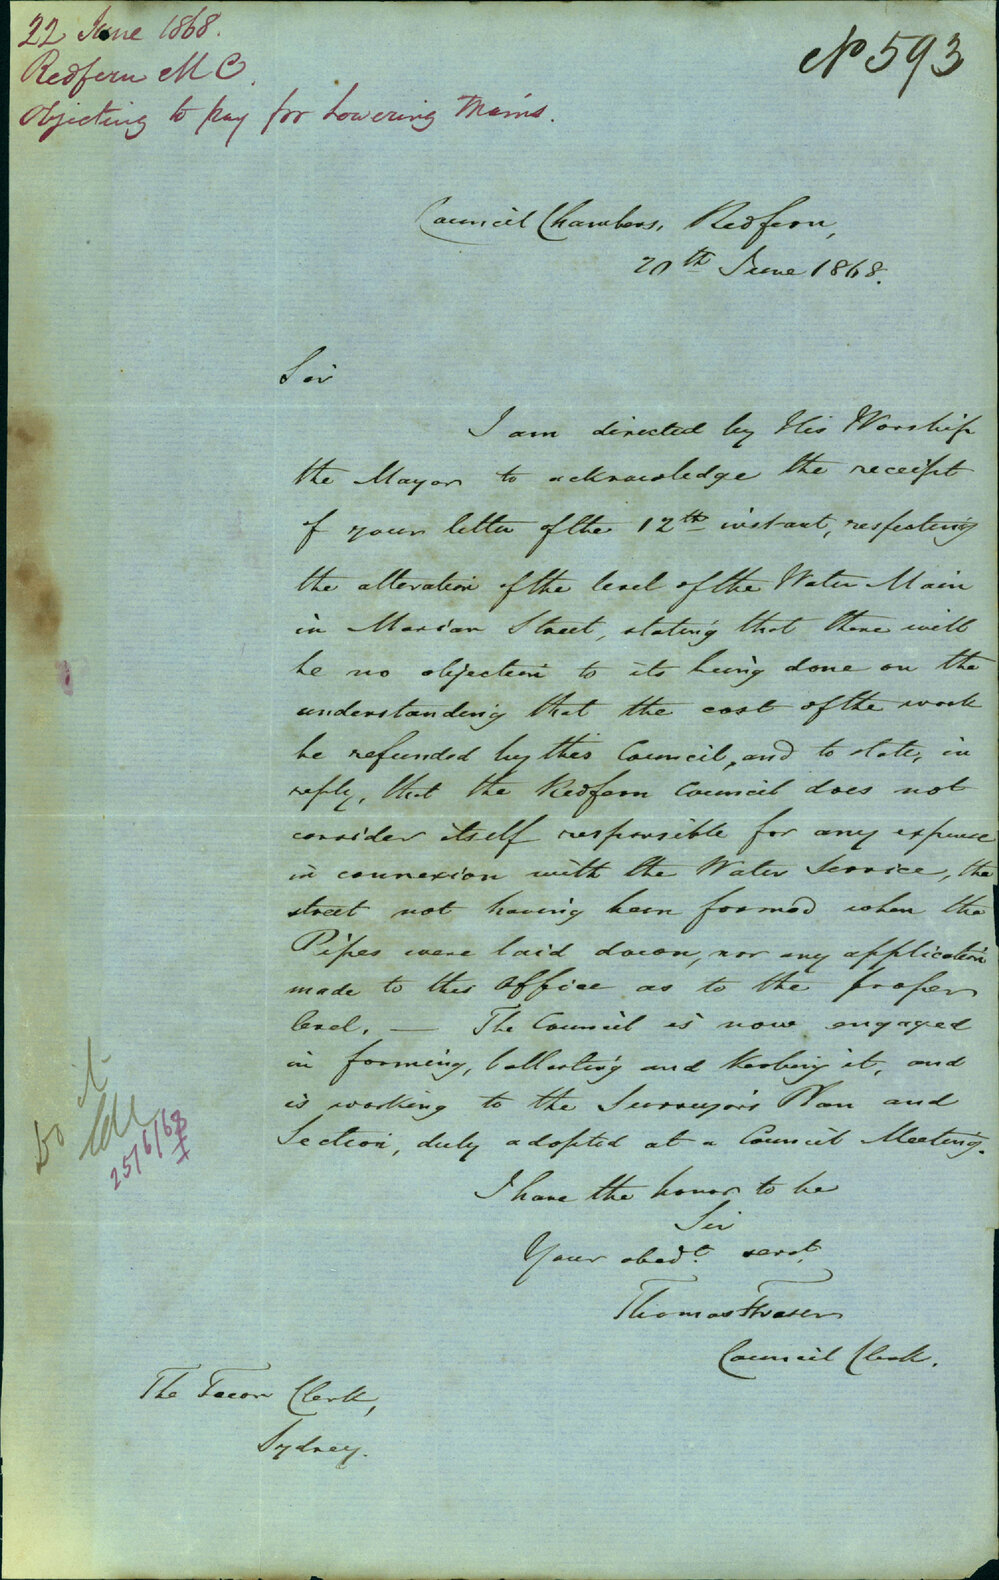 22 June 1868.
Redfern M C.
Objecting to pay for Lowering Mains.
No 593
Council Chambers, Redfern,
20th June 1868.
Sir
I am directed by His Worship
the Mayor to acknowledge the receipt
of your letter of the 12th instant, respecting
the alteration of the level of the Water Main
in Marian Street, stating that there will
be no objection to its being done on the
understanding that the cost of the work
be refunded by this Council, and to state, in
reply, that the Redfern Council does not
consider itself responsible for any expense
in connexion with the Water Service, the
street not having been formed when the
Pipes were laid down, nor any application
made to this Office as to the proper
level. — The Council is now engaged
in forming, ballasting and Kerbing it, and
is working to the Surveyor's Plan and
Section, duly adopted at a Council Meeting.
I have the honor to be
Sir
Your obedt. servt.
Thomas Fraser
Council Clerk.
The Town Clerk,
Sydney.
25/6/68